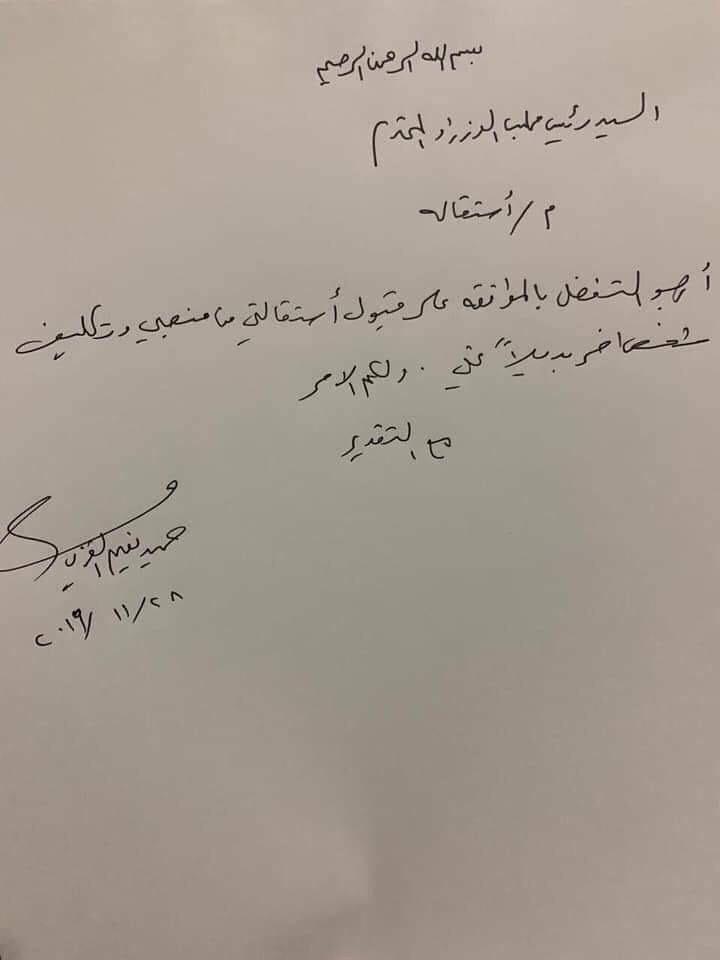 بسم الله الرحمن الرحيم
السيد رئيس مجلس الوزراء المحترم
م/ أستقاله
أرجو التفضل بالموافقه على قبول أستقالتي من منصبي وتكليف
شخص اخر بديلاً عني . ولكم الامر
مع التقدير
حميد نعيم الغزي
٢٠١٩/ ١١/٢٨